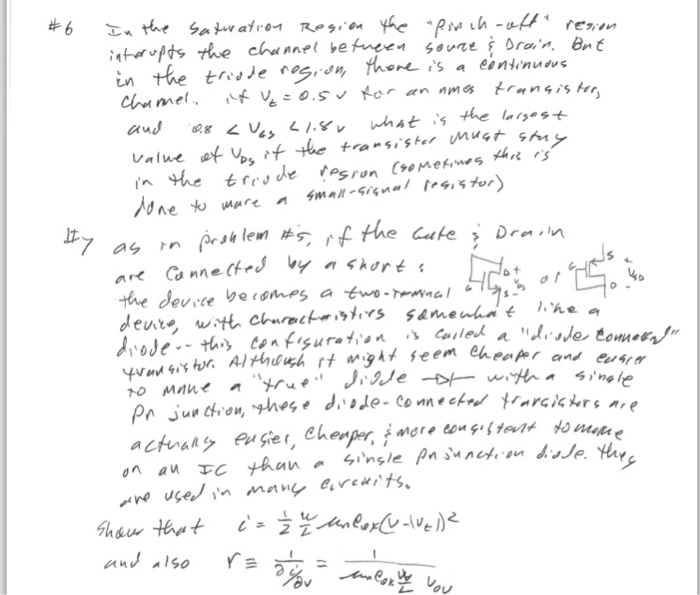 #6 In the saturation Region the "Pinch-off" region
interupts the channel between source & Drain. But
in the triode region, there is a continuous
channel. if Vt = 0.5v for an nmos transistor,
and 0.8 < VGS < 1.8v what is the largest
value of VDS if the transistor must stay
in the triode region (sometimes this is
done to make a small-signal resistor)
#7 as in problem #5, if the Gate & Drain
are connected by a short:
the device becomes a two-terminal
device, with characteristics somewhat like a
diode -- this configuration is called a "diode connected"
transistor. Although it might seem cheaper and easier
to make a "true" diode with a single
Pn junction, these diode-connected transistors are
actually easier, cheaper, & more consistent to make
on an IC than a single pn junction diode. they
are used in many circuits.
Show that i = 1/2 W/L μnCox(V-|Vt|)²
and also r ≡ 1/(∂i/∂v) = 1/(μnCox W/L Vov)
G D + V S - or G S + V D -